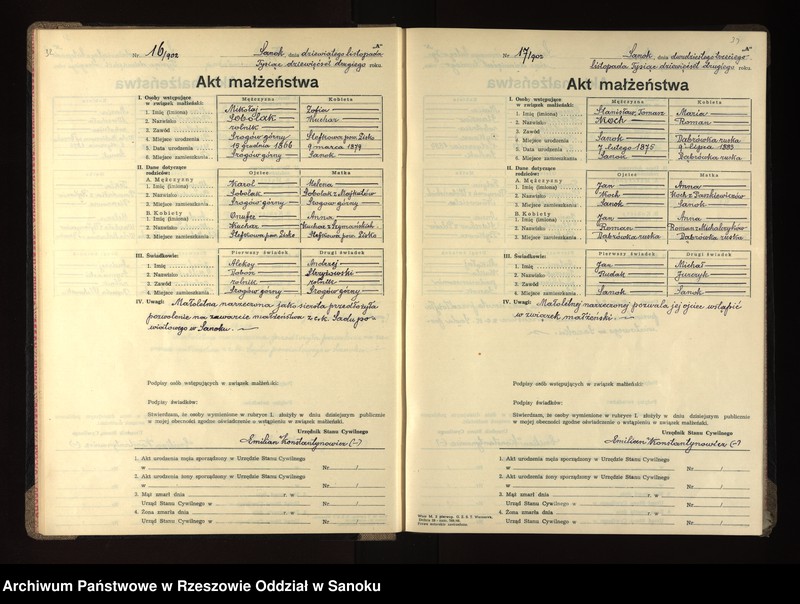 Nr. 16/902 Sanok, dnia dziewiątego listopada
Tysiąc dziewięćset drugiego roku
Akt małżeństwa
I. Osoby wstępujące w związek małżeński:
Mężczyzna Kobieta
1. Imię (imiona) Mikołaj Zofia
2. Nazwisko Sobolak Kuchar
3. Zawód rolnik
4. Miejsce urodzenia Srogów górny Stefkowa pow. Lisko
5. Data urodzenia 19 grudnia 1866 9 marca 1879
6. Miejsce zamieszkania Srogów górny Sanok
II. Dane dotyczące rodziców:
Ojciec Matka
A. Mężczyzny
1. Imię (imiona) Karol Helena
2. Nazwisko Sobolak Sobolak z
3. Miejsce zamieszkania Srogów górny Srogów górny
B. Kobiety
1. Imię (imiona) Onufer Anna
2. Nazwisko Kuchar Kuchar z
3. Miejsce zamieszkania Stefkowa pow. Lisko Stefkowa pow. Lisko
III. Świadkowie:
Pierwszy świadek Drugi świadek
1. Imię Aleksy Andrzej
2. Nazwisko
3. Zawód rolnik rolnik
4. Miejsce zamieszkania Srogów górny Srogów górny
IV. Uwagi: Małoletnia narzeczona jako sierota przedłożyła
pozwolenie na zawarcie małżeństwa z c.k. Sądu po-
wiatowego w Sanoku.
Podpisy osób wstępujących w związek małżeński:
Podpisy świadków:
Stwierdzam, że osoby wymienione w rubryce I. złożyły w dniu dzisiejszym publicznie
w mojej obecności zgodne oświadczenie o wstąpieniu w związek małżeński.
Urzędnik Stanu Cywilnego
Emilian Konstantynowicz (-)
1. Akt urodzenia męża sporządzony w Urzędzie Stanu Cywilnego
w Nr /
2. Akt urodzenia żony sporządzony w Urzędzie Stanu Cywilnego
w Nr /
3. Mąż zmarł dnia r. w
Urząd Stanu Cywilnego w Nr /
4. Żona zmarła dnia r. w
Urząd Stanu Cywilnego w Nr /
Nr. 17/902 Sanok, dnia dwudziestego trzeciego
listopada Tysiąc dziewięćset drugiego roku
Akt małżeństwa
I. Osoby wstępujące w związek małżeński:
Mężczyzna Kobieta
1. Imię (imiona) Stanisław, Tomasz Maria
2. Nazwisko Kloch Roman
3. Zawód
4. Miejsce urodzenia Sanok Dąbrówka ruska
5. Data urodzenia 7 lutego 1875 9 lipca 1883
6. Miejsce zamieszkania Sanok Dąbrówka ruska
II. Dane dotyczące rodziców:
Ojciec Matka
A. Mężczyzny
1. Imię (imiona) Jan Anna
2. Nazwisko Kloch Kloch z Paszkiewiczów
3. Miejsce zamieszkania Sanok Sanok
B. Kobiety
1. Imię (imiona) Jan Anna
2. Nazwisko Roman Roman z Michalczyków
3. Miejsce zamieszkania Dąbrówka ruska Dąbrówka ruska
III. Świadkowie:
Pierwszy świadek Drugi świadek
1. Imię Jan Michał
2. Nazwisko Dudak Jurczyk
3. Zawód
4. Miejsce zamieszkania Sanok Sanok
IV. Uwagi: Małoletniej narzeczonej pozwala jej ojciec wstąpić
w związek małżeński.
Podpisy osób wstępujących w związek małżeński:
Podpisy świadków:
Stwierdzam, że osoby wymienione w rubryce I. złożyły w dniu dzisiejszym publicznie
w mojej obecności zgodne oświadczenie o wstąpieniu w związek małżeński.
Urzędnik Stanu Cywilnego
Emilian Konstantynowicz (-)
1. Akt urodzenia męża sporządzony w Urzędzie Stanu Cywilnego
w Nr /
2. Akt urodzenia żony sporządzony w Urzędzie Stanu Cywilnego
w Nr /
3. Mąż zmarł dnia r. w
Urząd Stanu Cywilnego w Nr /
4. Żona zmarła dnia r. w
Urząd Stanu Cywilnego w Nr /
Archiwum Państwowe w Rzeszowie Oddział w Sanoku